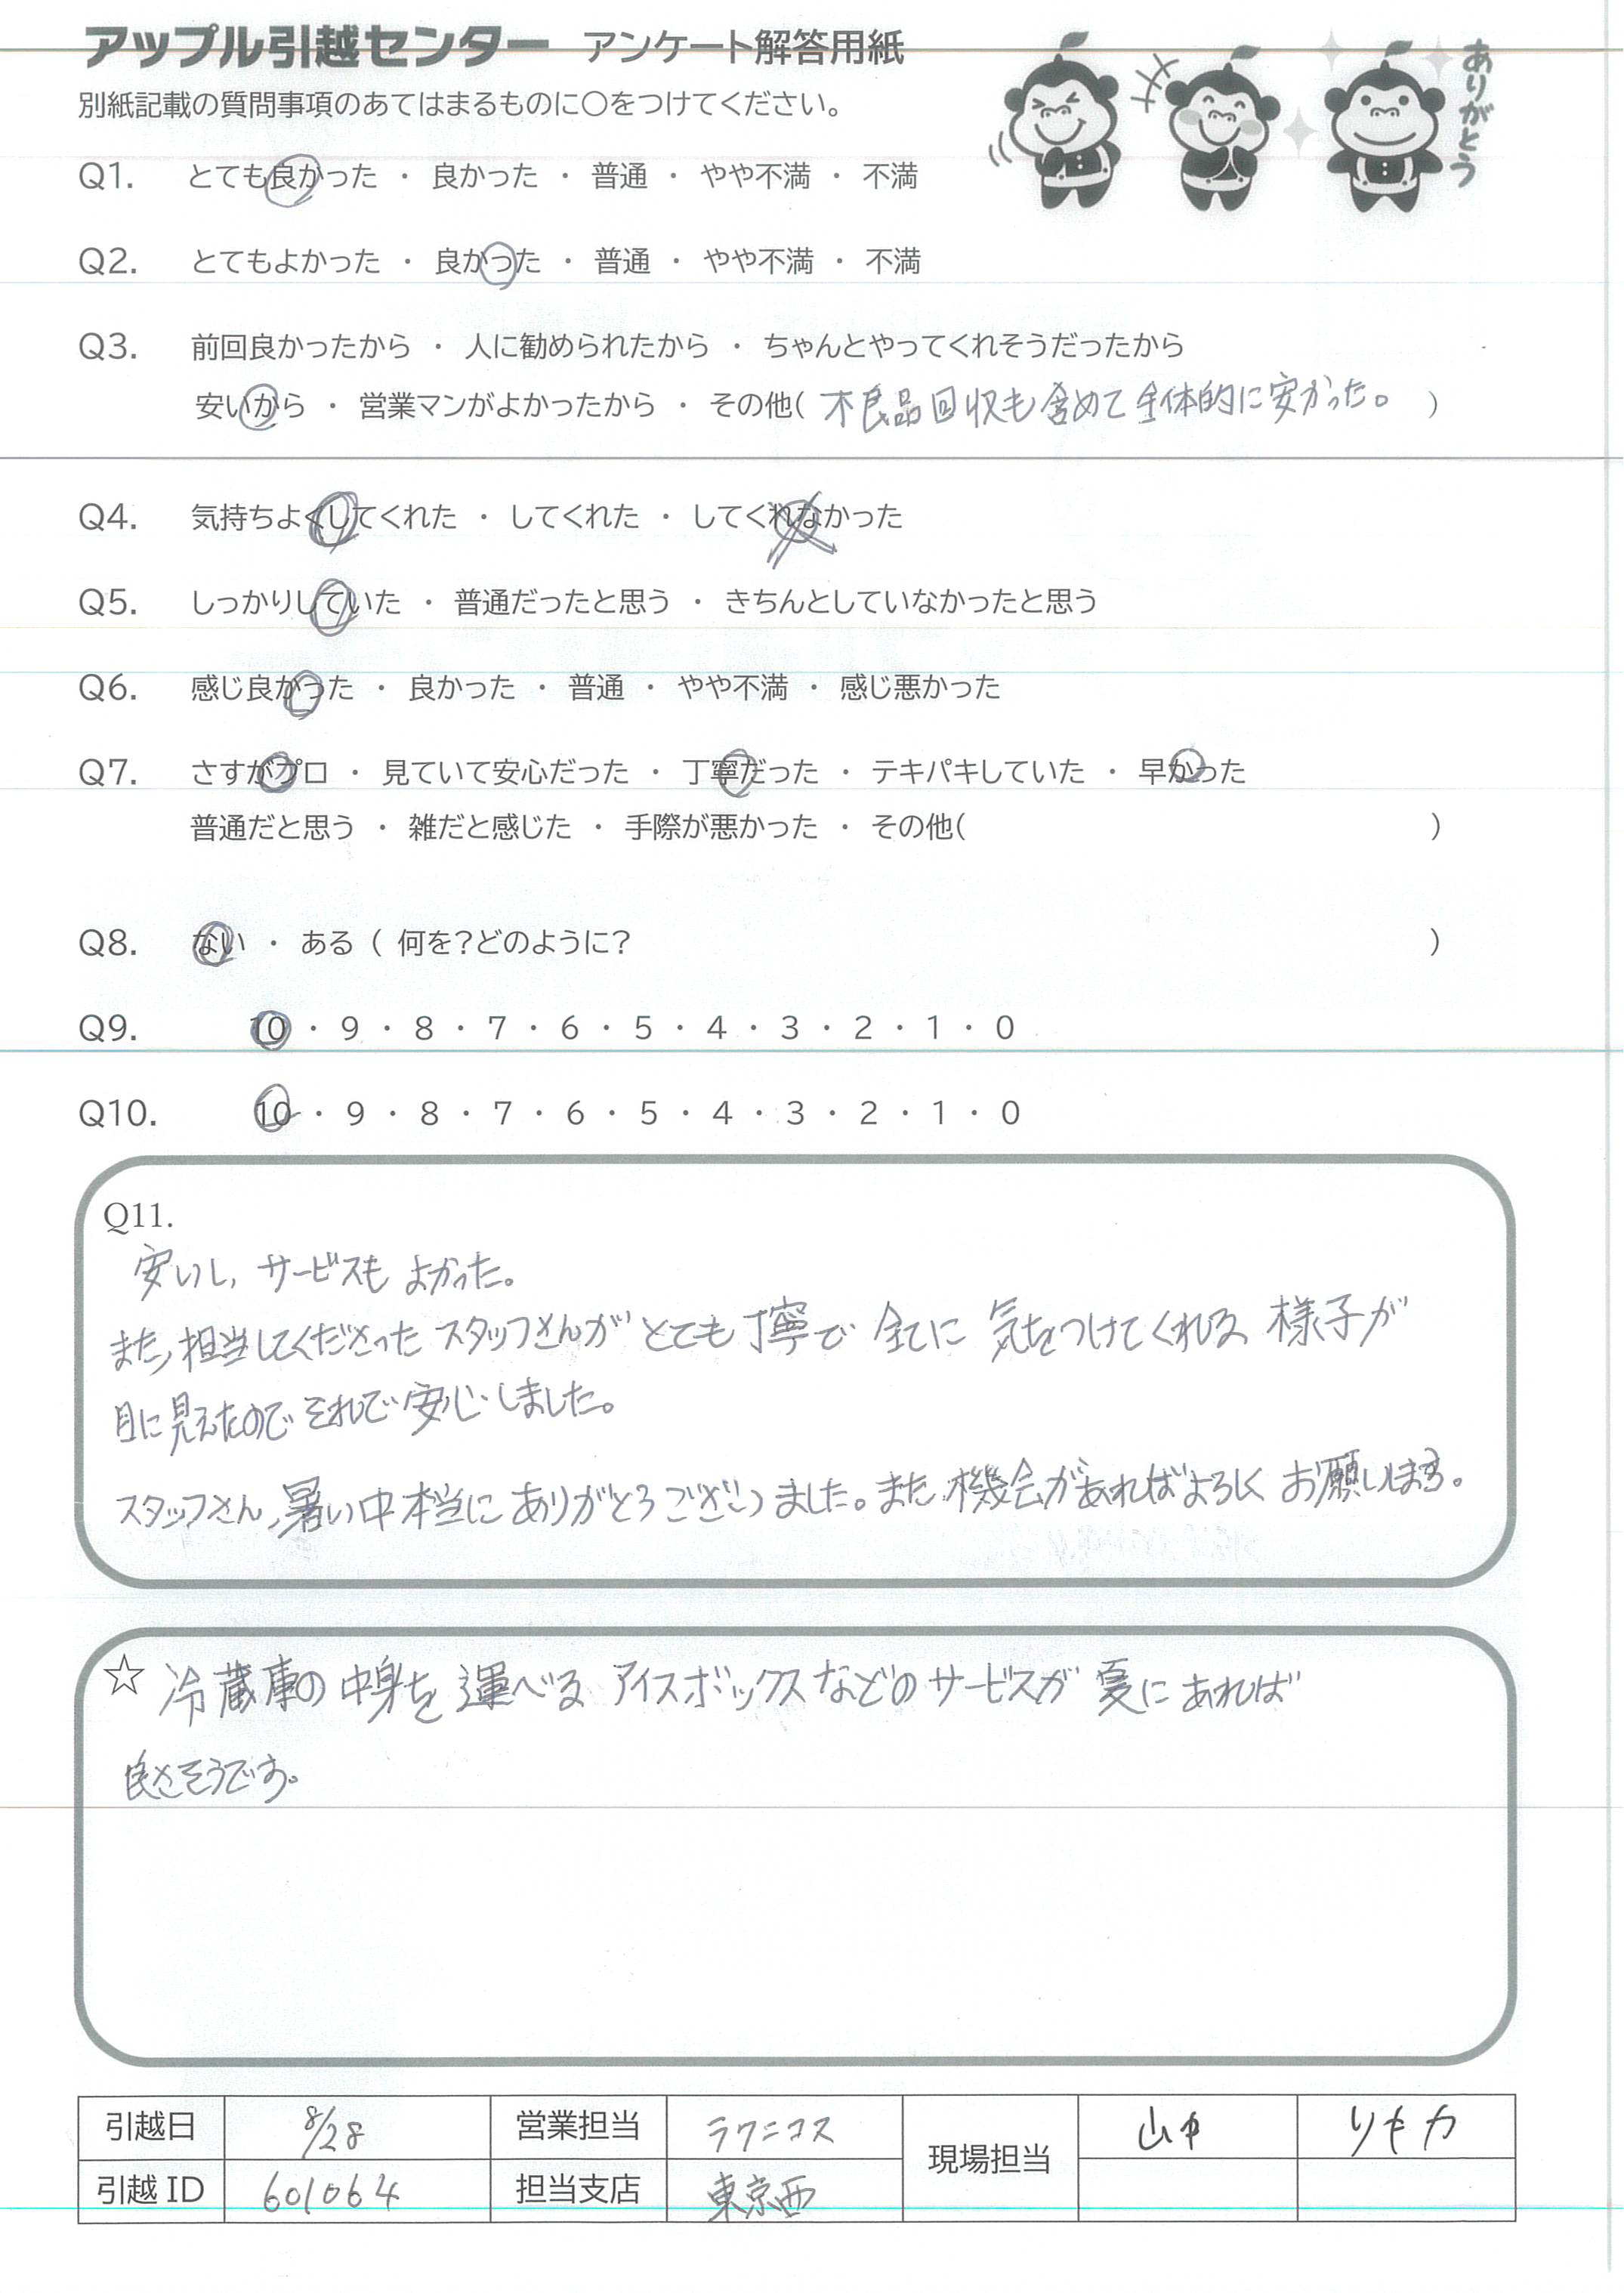 アップル引越センター アンケート解答用紙
ありがとう
別紙記載の質問事項のあてはまるものに○をつけてください。
Q1. とても良かった ・ 良かった ・ 普通 ・ やや不満 ・ 不満
Q2. とてもよかった ・ 良かった ・ 普通 ・ やや不満 ・ 不満
Q3. 前回良かったから ・ 人に勧められたから ・ ちゃんとやってくれそうだったから
安いから ・ 営業マンがよかったから ・ その他( 不良品回収も含めて全体的に安かった。 )
Q4. 気持ちよくしてくれた ・ してくれた ・ してくれなかった
Q5. しっかりしていた ・ 普通だったと思う ・ きちんとしていなかったと思う
Q6. 感じ良かった ・ 良かった ・ 普通 ・ やや不満 ・ 感じ悪かった
Q7. さすがプロ ・ 見ていて安心だった ・ 丁寧だった ・ テキパキしていた ・ 早かった
普通だと思う ・ 雑だと感じた ・ 手際が悪かった ・ その他( )
Q8. ない ・ ある ( 何を?どのように? )
Q9. 10 ・ 9 ・ 8 ・ 7 ・ 6 ・ 5 ・ 4 ・ 3 ・ 2 ・ 1 ・ 0
Q10. 10 ・ 9 ・ 8 ・ 7 ・ 6 ・ 5 ・ 4 ・ 3 ・ 2 ・ 1 ・ 0
Q11.
安いし、サービスもよかった。
また、担当してくださったスタッフさんがとても丁寧で全てに気をつけてくれる様子が
目に見えたのでそれで安心しました。
スタッフさん、暑い中本当にありがとうございました。また機会があればよろしくお願いします。
☆ 冷蔵庫の中身を運べるアイスボックスなどのサービスが夏にあれば
良さそうです。
引越日 8/28 営業担当 ラクニコス 現場担当 山中 リキカ
引越ID 601064 担当支店 東京西